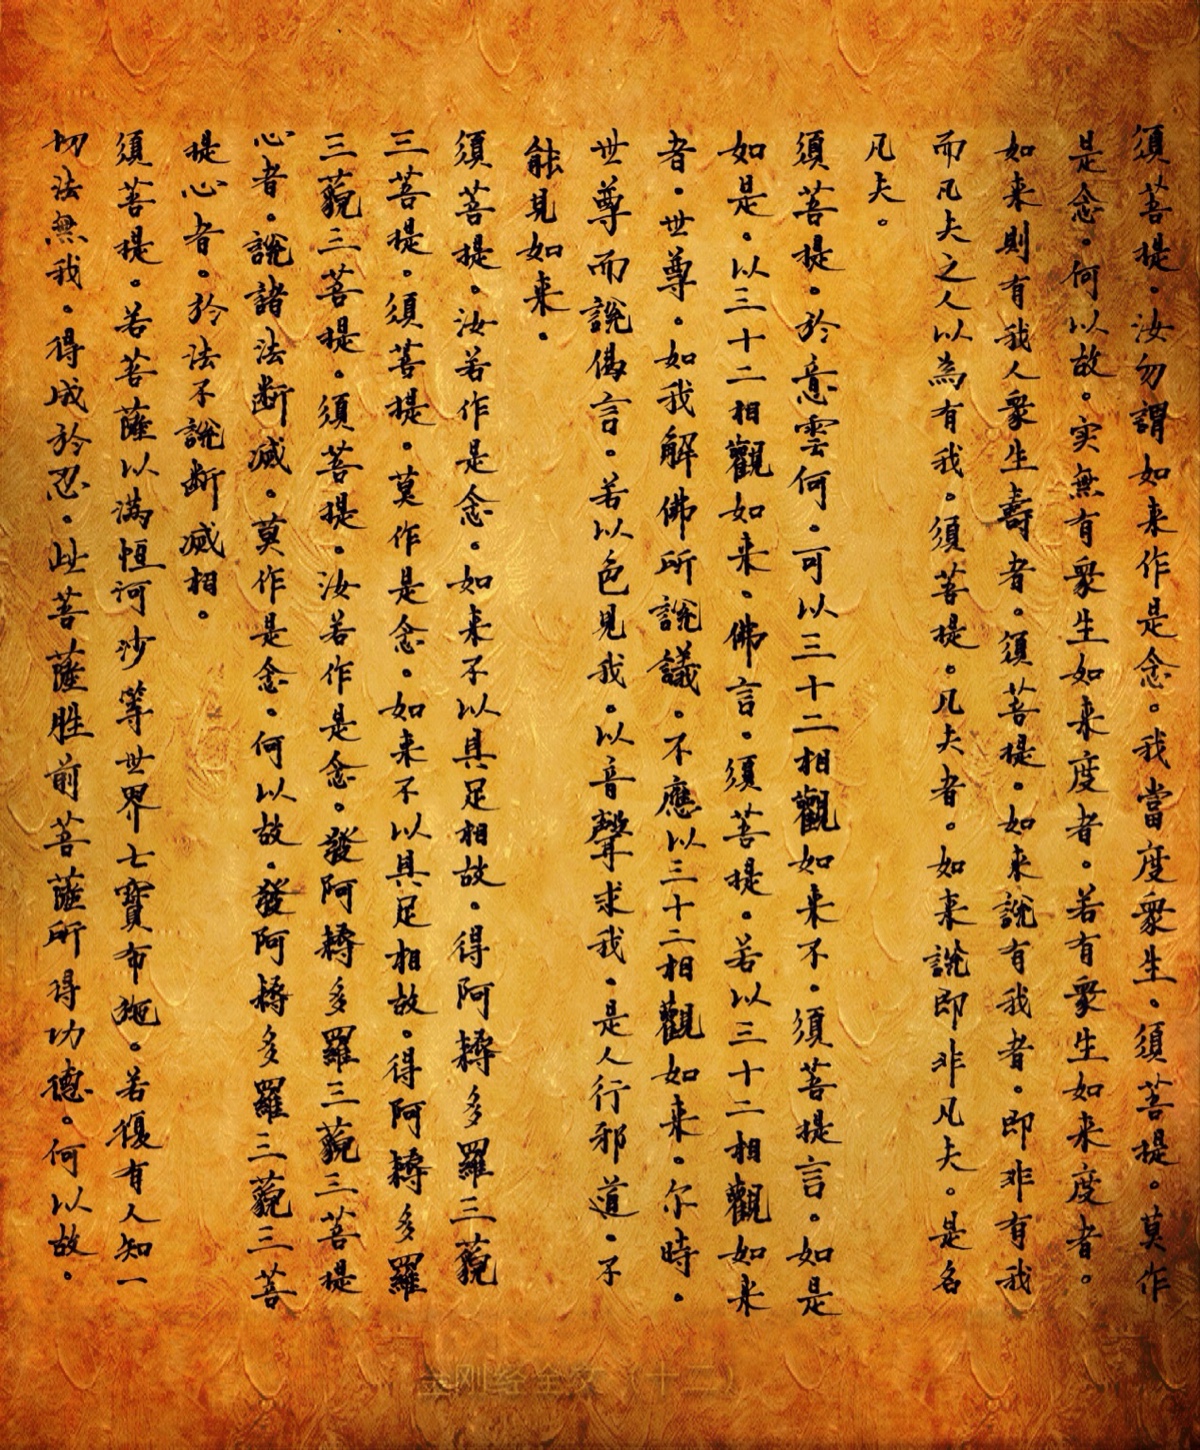 須菩提。汝勿謂如来作是念。我當度衆生。須菩提。莫作
是念。何以故。实無有衆生如来度者。若有衆生如来度者。
如来則有我人衆生壽者。須菩提。如来說有我者。即非有我
而凡夫之人以為有我。須菩提。凡夫者。如来說即非凡夫。是名
凡夫。
須菩提。於意雲何。可以三十二相觀如来不。須菩提言。如是
如是。以三十二相觀如来。佛言。須菩提。若以三十二相觀如来
者。世尊。如我解佛所說議。不應以三十二相觀如来。尔時。
世尊而說偈言。若以色見我。以音聲求我。是人行邪道。不
能見如来。
須菩提。汝若作是念。如来不以具足相故。得阿耨多羅三藐
三菩提。須菩提。莫作是念。如来不以具足相故。得阿耨多羅
三藐三菩提。須菩提。汝若作是念。發阿耨多羅三藐三菩提
心者。說諸法断滅。莫作是念。何以故。發阿耨多羅三藐三菩
提心者。於法不說断滅相。
須菩提。若菩薩以满恒河沙等世界七寶布施。若復有人知一
切法無我。得成於忍。此菩薩胜前菩薩所得功德。何以故。
金刚经全文（十二）